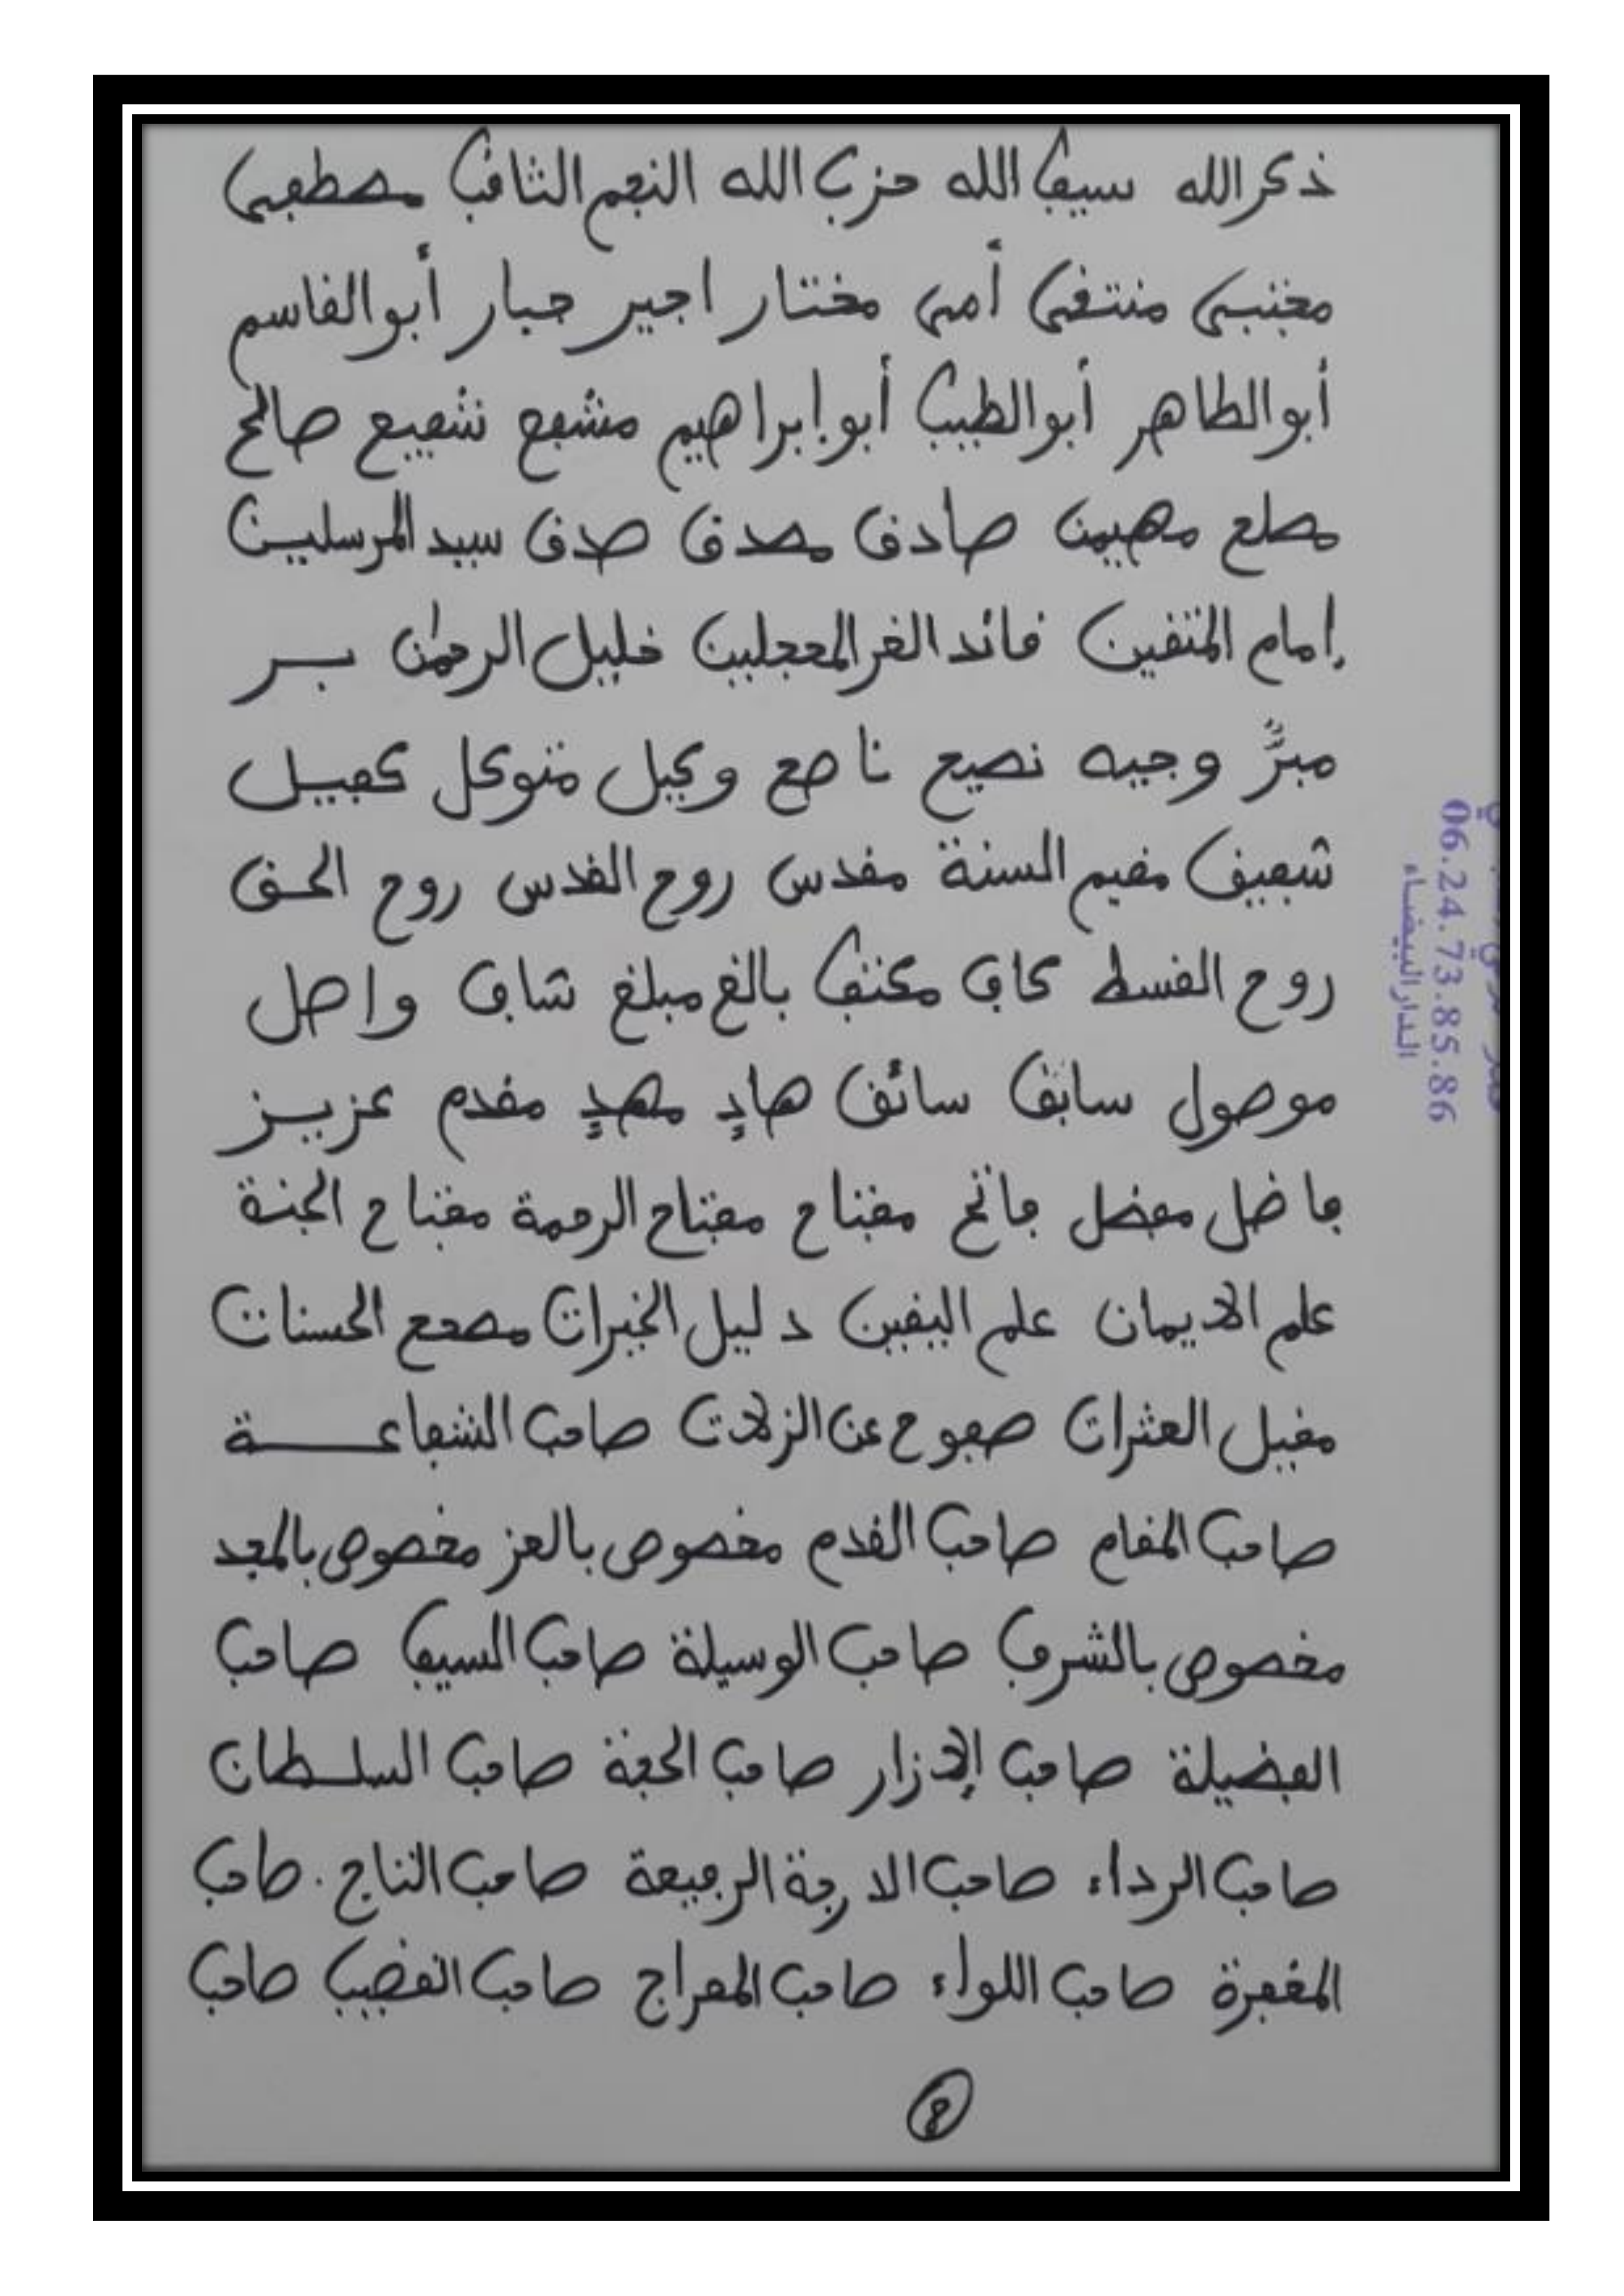 ذكر الله سيف الله حزب الله النجم الثاقب مصطفى
مجتبى منتقى أمي مختار اجير جبار أبو القاسم
أبو الطاهر أبو الطيب أبو إبراهيم مشفع شفيع صالح
مصلح مهيمن صادق مصدق صدق سيد المرسلين
إمام المتقين قائد الغر المحجلين خليل الرحمٰن بر
مبرٌّ وجيه نصيح ناصح وكيل متوكل كفيل
شفيق مقيم السنة مقدس روح القدس روح الحق
روح القسط كاف مكتف بالغ مبلغ شاف واصل
موصول سابق سائق هادٍ مهدٍ مقدم عزيز
فاضل مفضل فاتح مفتاح مفتاح الرحمة مفتاح الجنة
علم الايمان علم اليقين دليل الخيرات مصحح الحسنات
مقيل العثرات صفوح عن الزلات صاحب الشفاعة
صاحب المقام صاحب القدم مخصوص بالعز مخصوص بالمجد
مخصوص بالشرف صاحب الوسيلة صاحب السيف صاحب
الفضيلة صاحب الإزار صاحب الحجة صاحب السلطان
صاحب الرداء صاحب الدرجة الرفيعة صاحب التاج صاحب
المغفرة صاحب اللواء صاحب المعراج صاحب القضيب صاحب
06.24.73.85.86
الدار البيضاء